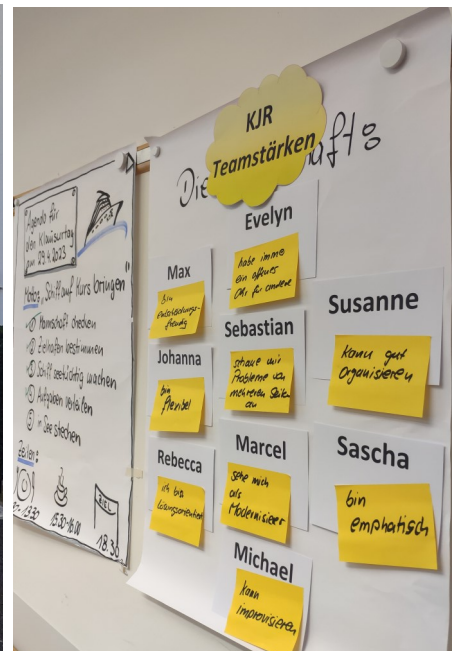 Agenda für
den Klausurtag
am 29.4.2023
Motto: "Schiff auf Kurs bringen"
① Mannschaft checken
② Zielhafen bestimmen
③ Schiff seetüchtig machen
④ Aufgaben verteilen
⑤ in See stechen
Zeiten:
13.30
15.30-16.00
ZIEL
18.30
KJR
Teamstärken
Die
aft:
Evelyn
habe immer
ein offenes
Ohr für andere
Max
bin
entscheidungs-
freudig
Susanne
kann gut
organisieren
Sebastian
schaue mir
Probleme von
mehreren Seiten
an
Johanna
bin
flexibel
Marcel
sehe mich
als
Modernisierer
Sascha
bin
emphatisch
Rebecca
ich bin
lösungsorientiert
Michael
kann
improvisieren